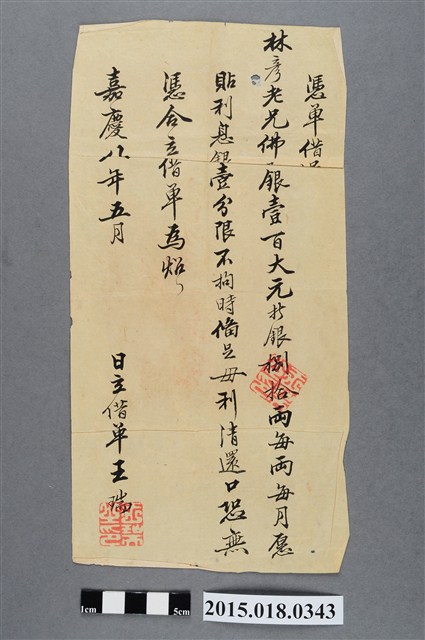 憑单借過
林彥老兄佛銀壹百大元折銀捌拾両每両每月愿
貼利息銀壹分限不拘時偹足母利清還口恐無
憑合立借单為炤
嘉慶八年五月
日立借单王瑞
1cm
5cm
2015.018.0343